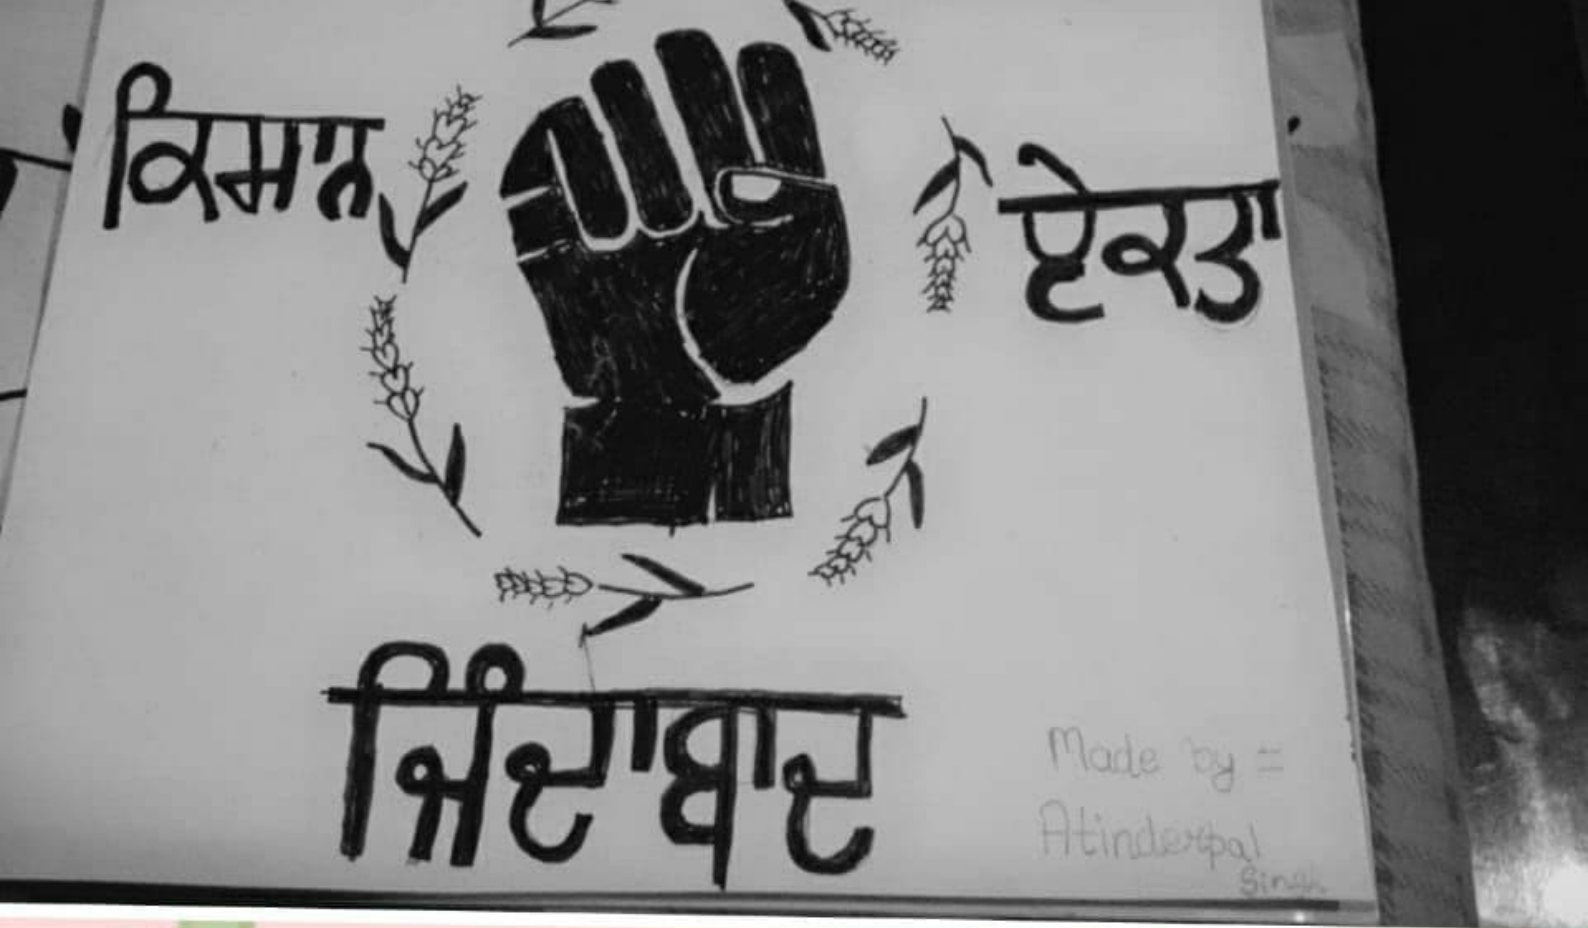 ਕਿਸਾਨ ਏਕਤਾ
ਜ਼ਿੰਦਾਬਾਦ
Made by =
Atinderpal
Singh